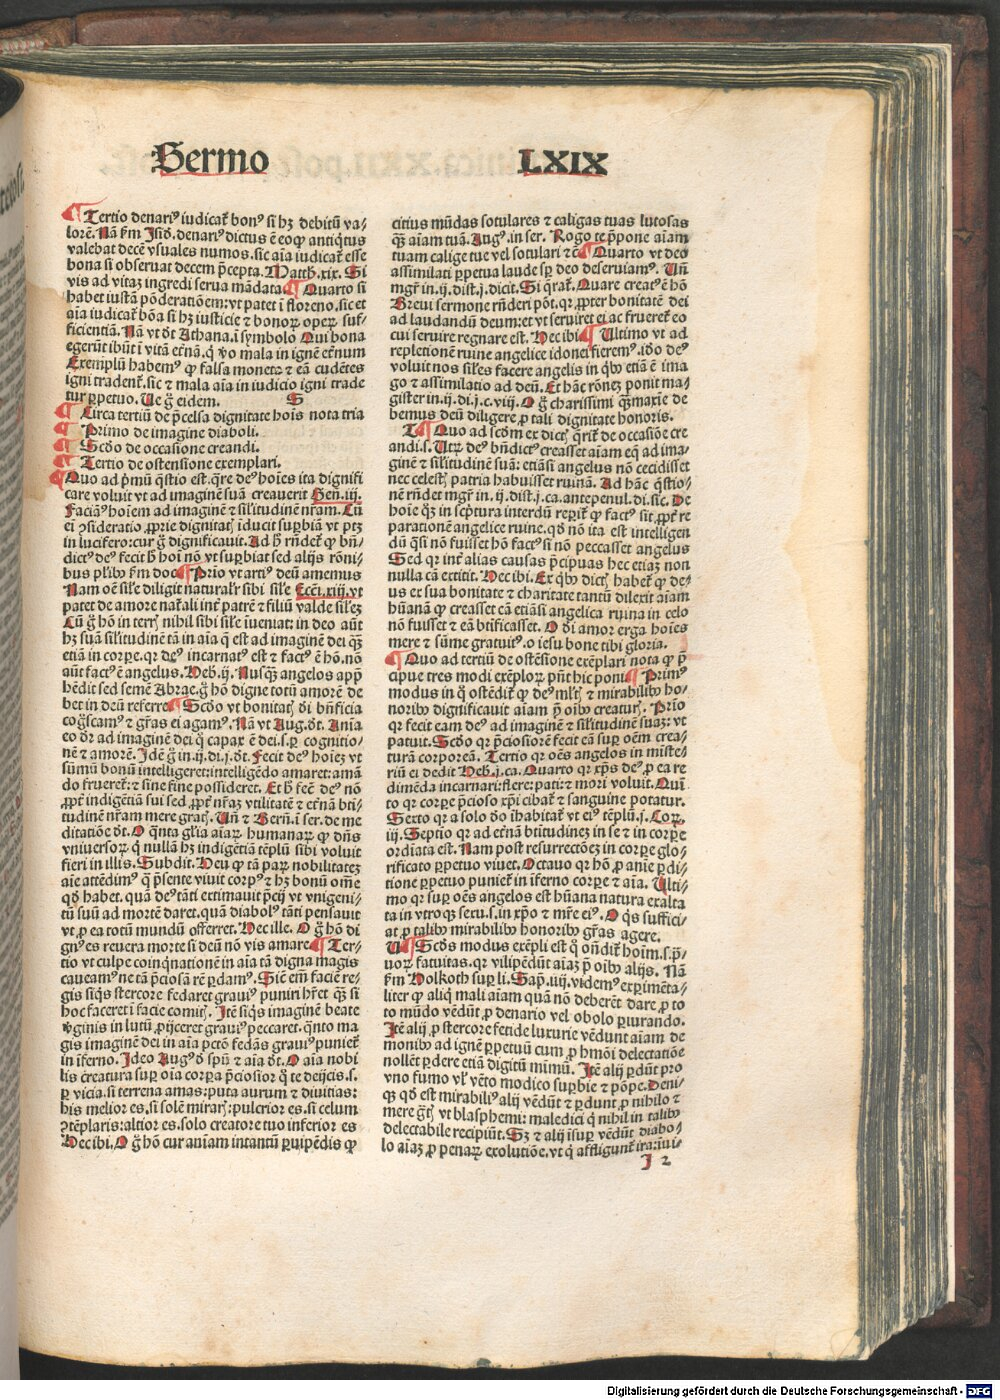 Sermo LXIX
¶ Tertio denariꝰ iudicat̃ bonꝰ si hꝫ debitũ va⸗
lorẽ. Nã ẜm Jsið. denariꝰ dictus ẽ eoꝙ antiq̃tus
valebat decẽ vsuales numos. sic aĩa iudicat̃ esse
bona si obseruat decem p̃cepta. Matth. xix. Si
vis ad vitaꝫ ingredi serua mãdata ¶ Quarto si
habet iustã põderatiõem: vt patet ĩ floreno. sic et
aĩa iudicat̃ bõa si hꝫ iusticie ⁊ bonoꝝ operꝝ suf⸗
ficientiã. Nã vt dõt Athana. ĩ symbolo Qui bona
egerũt ibũt ĩ vitã et̃nã. q̃ ꝟo mala in ignẽ et̃num
Exemplũ habemꝰ ꝙ falsa moneta ⁊ eã cudẽtes
igni tradent̃. sic ⁊ mala aĩa in iudicio igni trade
tur ꝑpetuo. Ue g̃ eidem. S
¶ Circa tertiũ de p̃celsa dignitate hoĩs nota tria
¶ Primo de imagine diaboli.
¶ Scðo de occasione creandi.
¶ Tertio de ostensione exemplari.
¶ Quo ad p̃mũ q̃stio est. q̃re deꝰ hoĩes ita dignifi
care voluit vt ad imaginẽ suã creauerit Gen. iij.
Faciãꝰ hoĩem ad imaginẽ ⁊ sil̃itudinẽ nr̃am. Cũ
ei ꝯsideratio ꝓprie dignitat̃ ĩducit supbiã vt ptꝫ
in lucifero: cur g̃ dignificauit. Ad h̃ rñdet̃ ꝙ bñ⸗
dictꝰ deꝰ fecit h̃ hoĩ nõ vt supbiat sed alijs rõni⸗
bus pl̃ibꝰ ẜm doc ¶ Prĩo vt artiꝰ deũ amemus
Nam oẽ sil̃e diligit naturalr̃ sibi sil̃e Ecc̃i. xiij. vt
patet de amore nat̃ali int̃ patrẽ ⁊ filiũ valde sil̃eꝫ
Cũ g̃ hõ in terr̃ nihil sibi sil̃e ĩueniat: in deo aũt
hꝫ suã sil̃itudinẽ tã in aĩa q̃ est ad imaginẽ dei q̃ꝫ
etiã in corꝑe. qr deꝰ incarnatꝰ est ⁊ factꝰ ẽ hõ. nõ
aũt factꝰ ẽ angelus. Heb. ij. Nusq̃ꝫ angelos app̃
hẽdit sed semẽ Abrae. g̃ hõ digne totũ amorẽ de
bet in deũ referre ¶ Scðo vt bonitat̃ di bñficia
cog̃scamꝰ ⁊ gr̃as ei agamꝰ. Nã vt Aug. dõt. Anĩa
eo ðr ad imaginẽ dei q̃ capax ẽ dei. s. ꝑ cognitio⸗
nẽ ⁊ amorẽ. Jdẽ g̃ in. ij. di. j. dõt. Fecit deꝰ hoĩeꝫ vt
sũmũ bonũ intelligeret: intelligẽdo amaret: amã
do frueret̃: ⁊ sine fine possideret. Et h̃ fec̃ deꝰ nõ
ꝓpt̃ indigẽtiã sui sed ꝓpt̃ nr̃aꝫ vtilitatẽ ⁊ et̃nã bti⸗
tudinẽ nr̃am mere grat̃. Uñ ⁊ Berñ. ĩ ser. de me
ditatiõe dõt. O q̃nta gl̃ia aĩaꝝ humanaꝝ ꝙ dñs
vniuersoꝝ q̃ nullã hꝫ indigẽtiã tẽplũ sibi voluit
fieri in illis. Subdit. Heu ꝙ tã paꝝ nobilitateꝫ
aĩe attẽdimꝰ q̃ p̃sente viuit corpꝰ ⁊ hꝫ bonũ om̃e
qð habet. quã deꝰ tãti extimauit p̃cij vt vnigeni⸗
tũ suũ ad mortẽ daret. quã diabolꝰ tãti pensauit
vt ꝓ ea totũ mundũ offerret. Hec ille. O g̃ hõ di
gnꝰ es reuera morte si deũ nõ vis amare ¶ Ter⸗
tio vt culpe coinq̃natiõnẽ in aĩa tã digna magis
caueamꝰ ne tã p̃ciosã rẽ ꝑdamꝰ. Sic̃ em̃ faciẽ re⸗
gis siq̃s stercore fedaret grauiꝰ puniri hr̃et q̃ꝫ si
hoc faceret ĩ facie comit̃. Jtẽ siq̃s imaginẽ beate
ꝟginis in lutũ ꝓijceret grauiꝰ peccaret. q̃nto ma
gis imaginẽ dei in aĩa pctõ fedãs grauiꝰ puniet̃
in ĩferno. Jdeo Augꝰ ð spũ ⁊ aĩa dõt. O aĩa nobi
lis creatura suꝑ oĩa corꝑa p̃ciosior q̃ te deijcis. s.
ꝑ vicia. si terrena amas: puta aurum ⁊ diuitias:
his melior es. si solẽ mirar̃: pulcrior es. si celum
ꝯtẽplaris: altior es. solo creatore tuo inferior es
Hec ibi. O g̃ hõ cur aĩam intantũ ꝑuipẽdis ꝙ
citius mũdas sotulares ⁊ caligas tuas lutosas
q̃ꝫ aĩam tuã. Augꝰ. in ser. Rogo te p̃pone aĩam
tuam calige tue vel sotulari ⁊c̃ ¶ Quarto vt deo
assimilati ꝑpetua laude sꝑ deo deseruiamꝰ. Uñ
mgr̃ in. ij. dist. j. dicit. Si q̃rat̃. Quare creatꝰ ẽ hõ
Breui sermone rñderi põt. qr ꝓpter bonitatẽ dei
ad laudandũ deum: et vt seruiret ei ac frueret̃ eo
cui seruire regnare est. Hec ibi ¶ Ultimo vt ad
repletionẽ ruine angelice idonei fieremꝰ. iðo deꝰ
voluit nos sil̃es facere angelis in qbꝰ etiã ẽ ima
go ⁊ assimilatio ad deũ. Et hãc rõneꝫ ponit ma⸗
gister in. ij. di. j. c. viij. O g̃ charissimi q̃ꝫmaxĩe de
bemus deũ diligere ꝓ tali dignitate honoris.
T ¶ Quo ad scðm ex dict̃ q̃rit̃ de occasiõe cre
andi. s. Utꝝ deꝰ bñdictꝰ creasset aĩam eq̃ ad ima⸗
ginẽ ⁊ sil̃itudinẽ suã: etiãsi angelus nõ cecidisset
nec celest̃ patria habuisset ruinã. Ad hãc q̃stio⸗
nẽ rñdet mgr̃ in. ij. dist. j. ca. antepenul. di. sic. De
hoĩe q̃ꝫ in scp̃tura interdũ reꝑit̃ ꝙ factꝰ sit ꝓpt̃ re
parationẽ angelice ruine. qð nõ ita est intelligen
dũ q̃si nõ fuisset hõ factꝰ si nõ peccasset angelus
Sed qr int̃ alias causas p̃cipuas hec etiaꝫ non
nulla cã extitit. Hec ibi. Ex qbꝰ dict̃ habet̃ ꝙ de⸗
us ex sua bonitate ⁊ charitate tantũ dilexit aĩam
hũanã ꝙ creasset cã etiãsi angelica ruina in celo
nõ fuisset ⁊ eã btificasset. O di amor erga hoĩes
mere ⁊ sũme gratuitꝰ. o iesu bone tibi gloria.
¶ Quo ad tertiũ de ostẽsione exẽplari nota ꝙ p̃
cipue tres modi exẽploꝝ pñt hic poni ¶ Primꝰ
modus in q̃ ostẽdit̃ ꝙ deꝰ mlt̃ ⁊ mirabilibꝰ ho⸗
noribꝰ dignificauit aĩam p̃ oĩbꝰ creatur̃. Prĩo
qr fecit eam deꝰ ad imaginẽ ⁊ sil̃itudinẽ suaꝫ: vt
patuit. Scðo qr p̃ciosiorẽ fecit eã suꝑ oẽm crea⸗
turã corporeã. Tertio qr oẽs angelos in miste⸗
riũ ei dedit Heb. j. ca. Quarto qr xp̃s deꝰ ꝓ ea re
dimẽda incarnari: flere: pati: ⁊ mori voluit. Quĩ
to qr corꝑe p̃cioso xp̃i cibat̃ ⁊ sanguine potatur.
Sexto qr a solo ðo ĩhabitat̃ vt eiꝰ tẽplũ. j. Corꝝ.
iij. Septĩo qr ad et̃nã btitudineꝫ in se ⁊ in corꝑe
ordiata est. Nam post resurrectõeꝫ in corꝑe glo⸗
rificato ꝑpetuo viuet. Octauo qr hõ ꝓ anĩe ꝑdi⸗
tione ꝑpetuo puniet̃ in ĩferno corꝑe ⁊ aĩa. Ulti⸗
mo qr suꝑ oẽs angelos est hũana natura exalta
ta in vtroqꝫ sexu. s. in xp̃o ⁊ mr̃e eiꝰ. O q̃s suffici⸗
at ꝓ talibꝰ mirabilibꝰ honoribꝰ gr̃as agere.
U ¶ Scðs modus exẽpli est q̃ oñdit̃ hoĩm. s. p̃⸗
uoꝝ fatuitas. qr vilipẽdũt aĩaꝫ p̃ oĩbꝰ alijs. Nã
ẜm Holkoth suꝑ li. Sap. iiij. videmꝰ experimẽta⸗
liter ꝙ aliq̃ mali aĩam quã nõ deberẽt dare ꝓ to
to mũdo vẽdũt ꝓ denario vel obolo ꝑiurando.
Jtẽ alij ꝓ stercore fetide luxurie vẽdunt aĩam de
monibꝰ ad ignẽ ꝑpetuũ cum ꝓ hmõi delectatiõe
nollẽt ꝑdere etiã digitũ mimũ. Jtẽ alij ꝑdũt pro
vno fumo vl̃ vẽto modico supbie ⁊ põpe. Deni⸗
qꝫ qð est mirabiliꝰ alij vẽdũt ⁊ ꝑdunt ꝓ nihilo ⁊
mere g̃t̃ vt blasphemi: maledici q̃ nihil in talibꝰ
delectabile recipiũt. Sꝫ ⁊ alij ĩsuꝑ vẽdũt diabo⸗
lo aĩaꝫ ꝓ penaꝝ exolutiõe. vt q̃ affligunt̃ ira: iui⸗
J 2
Digitalisierung gefördert durch die Deutsche Forschungsgemeinschaft - DFG